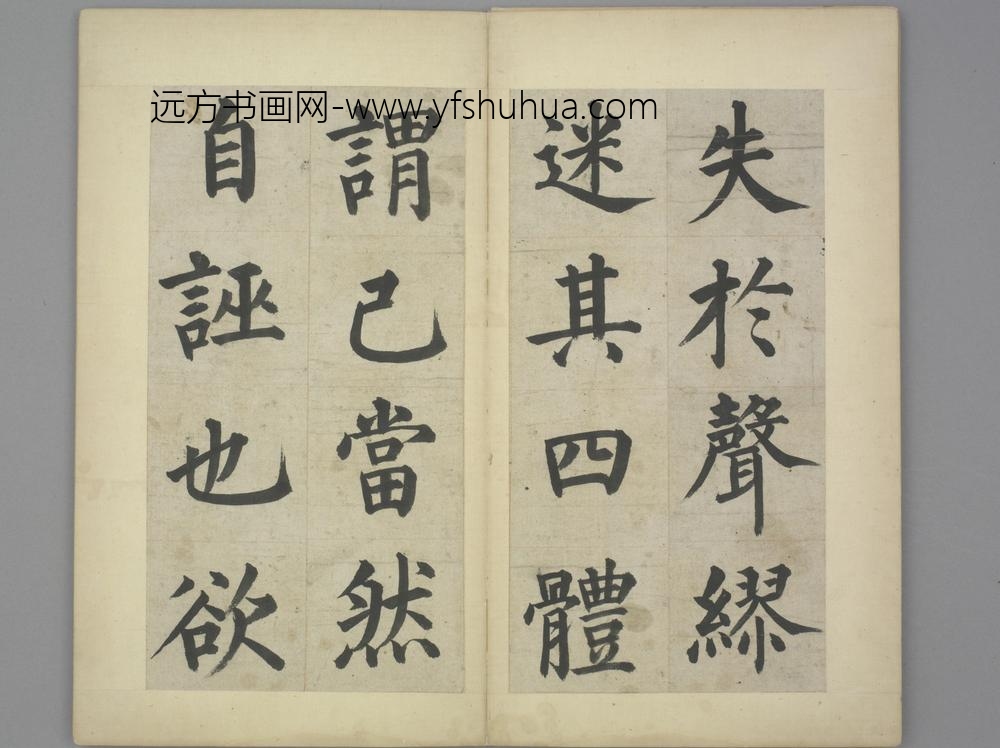 远方书画网-www.yfshuhua.com
失於聲繆
迷其四體
謂己當然
自誣也欲